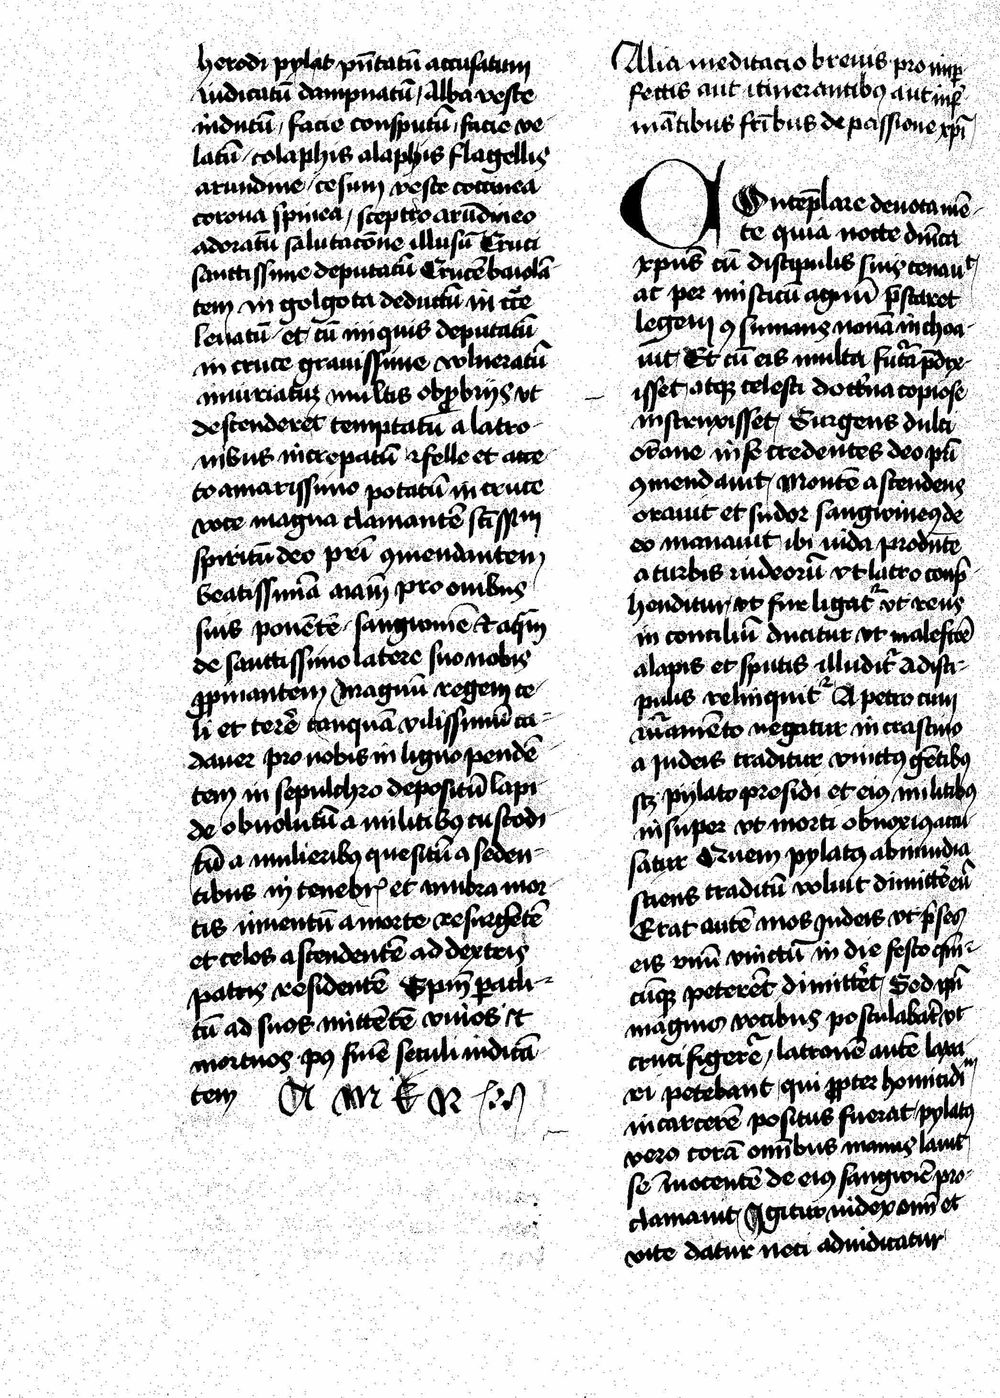 herodi pylat pn̄tatū accusatum
iudicatū dampnatū / Alba veste
indutū / facie consputū / facie ve-
latū / colaphis alaphis flagellis
arundine / cesum veste coccinea
corona spinea / sceptro arūdineo
adoratū salutacōne illusū Cruci
sanctissime deputatū Crucē baiolā-
tem in golgota deductū in cͨe
leuatū / et cū iniquis deputatū
in cruce grauissime vulneratū
iniuriatus multis obprobrijs vt
descenderet temptatū a latro-
nibus increpatū felle et ace-
to amarissimo potatū in cruce
voce magna clamantē
spiritū deo pr̄i ꝯmendantem
beatissimā aīam pro omībus
suis ponētē / sanguinē et aquam
de sanctissimo latere suo nobis
ꝓpinantem / Magnū regem ce-
li et terre tanquā vilissimū ca-
dauer pro nobis in ligno pendē-
tem in sepulchro depositū lapi-
de obuolutū a militibꝰ custodi-
tū a mulieribꝰ quesitū a seden-
tibus in tenebris et vmbra mor-
tis inuentū a morte resurgētē
et celos ascendentē ad dextris
patris residentē Spm̄ paracli-
tū ad suos mittētē viuos et
mortuos pꝰ finē seculi iudicā-
tem A M E N
Alia meditacio breuis pro imper-
fectis aut itinerantibꝰ aut infir-
mātibus fr̄ibus de passione xpī
Contēplare deuota mē-
te quia nocte dn̄ica
xpūs cū discipulis suis cenaut
ac per misticū agnū pstaret
legem ꝯsumans nouā inchoa-
uit / Et cū eis multa futura pdix-
isset / atqꝫ celesti doctrina copiose
instruxisset / Surgens dulci
or̄one in se credentes deo pr̄i
ꝯmendauit / Montē ascendens
orauit et sudor sanguineꝰ de
eo manauit ibi iuda prodūte
a turbis iudeorū vt latro conp-
henditur / vt fur ligat vt reus
in conciliū ducitur vt malefcē
alapis et sputis illudit a disci-
pulis relinquit A petro cum
iuramēto negatur in crastino
a Judeis traditur vinctꝰ gētibꝰ
scꝫ pylato presidi et eiꝰ militibꝰ
insuper vt morti obnoxiꝰ accu-
satur Quem pylatꝰ ab inuidia
sciens traditū voluit dimittē eū
Erat autē mos Judeis vt
eis vnū vinctū in die festo quē-
cūqꝫ peterēt dimittēt / Sed ipī
magnis vocibus postulabāt vt
crucifigerē / latronē autē laxa-
ri petebant / qui ꝓpter homicidiū
in carcerē positus fuerat / pylatꝰ
vero corā omībus manus lauit
se innocentē de eiꝰ sanguinē pro-
clamauit / Igitur iudex om̄ et
vite datur neci adiudicatur